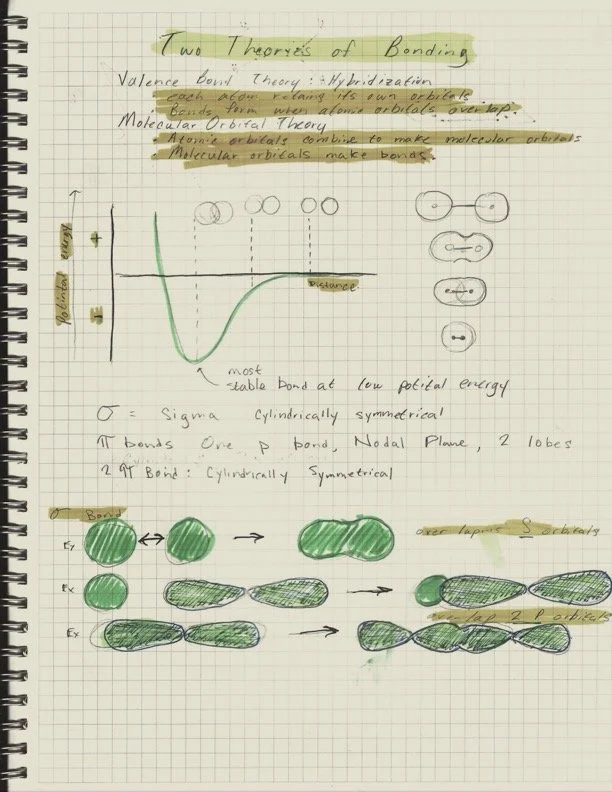 Two Theories of Bonding
Valence Bond Theory: Hybridization
• Each atom retaing its own orbitals
• Bonds form when atomic orbitals overlap.
Molecular Orbital Theory
• Atomic orbitals combine to make molecular orbitals
• Molecular orbitals make bonds.
Potintal energy
+
Distance
most
stable bond at low potital energy
σ = Sigma Cylindrically symmetrical
π bonds One p bond, Nodal Plane, 2 lobes
2 π Bond: Cylindrically Symmetrical
σ Bond
Ex
over lapins S orbitals
Ex
over lap 2 P orbitals
Ex